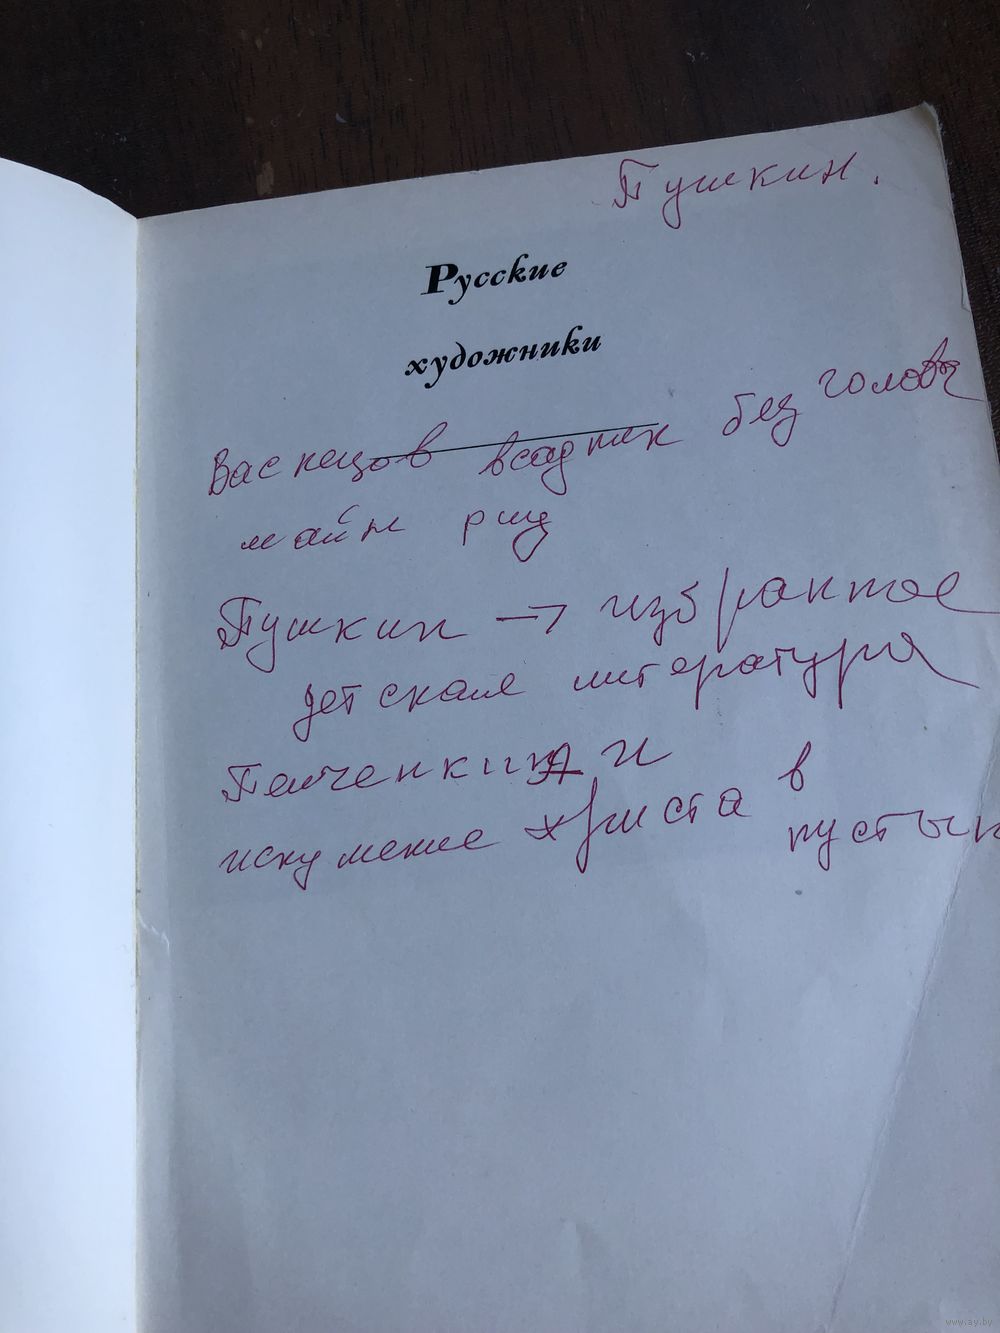 Пушкин.
Русские
художники
Васнецов всадник без головы
майн рид
Пушкин → избранное
детская литература
и
искушение христа в
пустын
www.ay.by